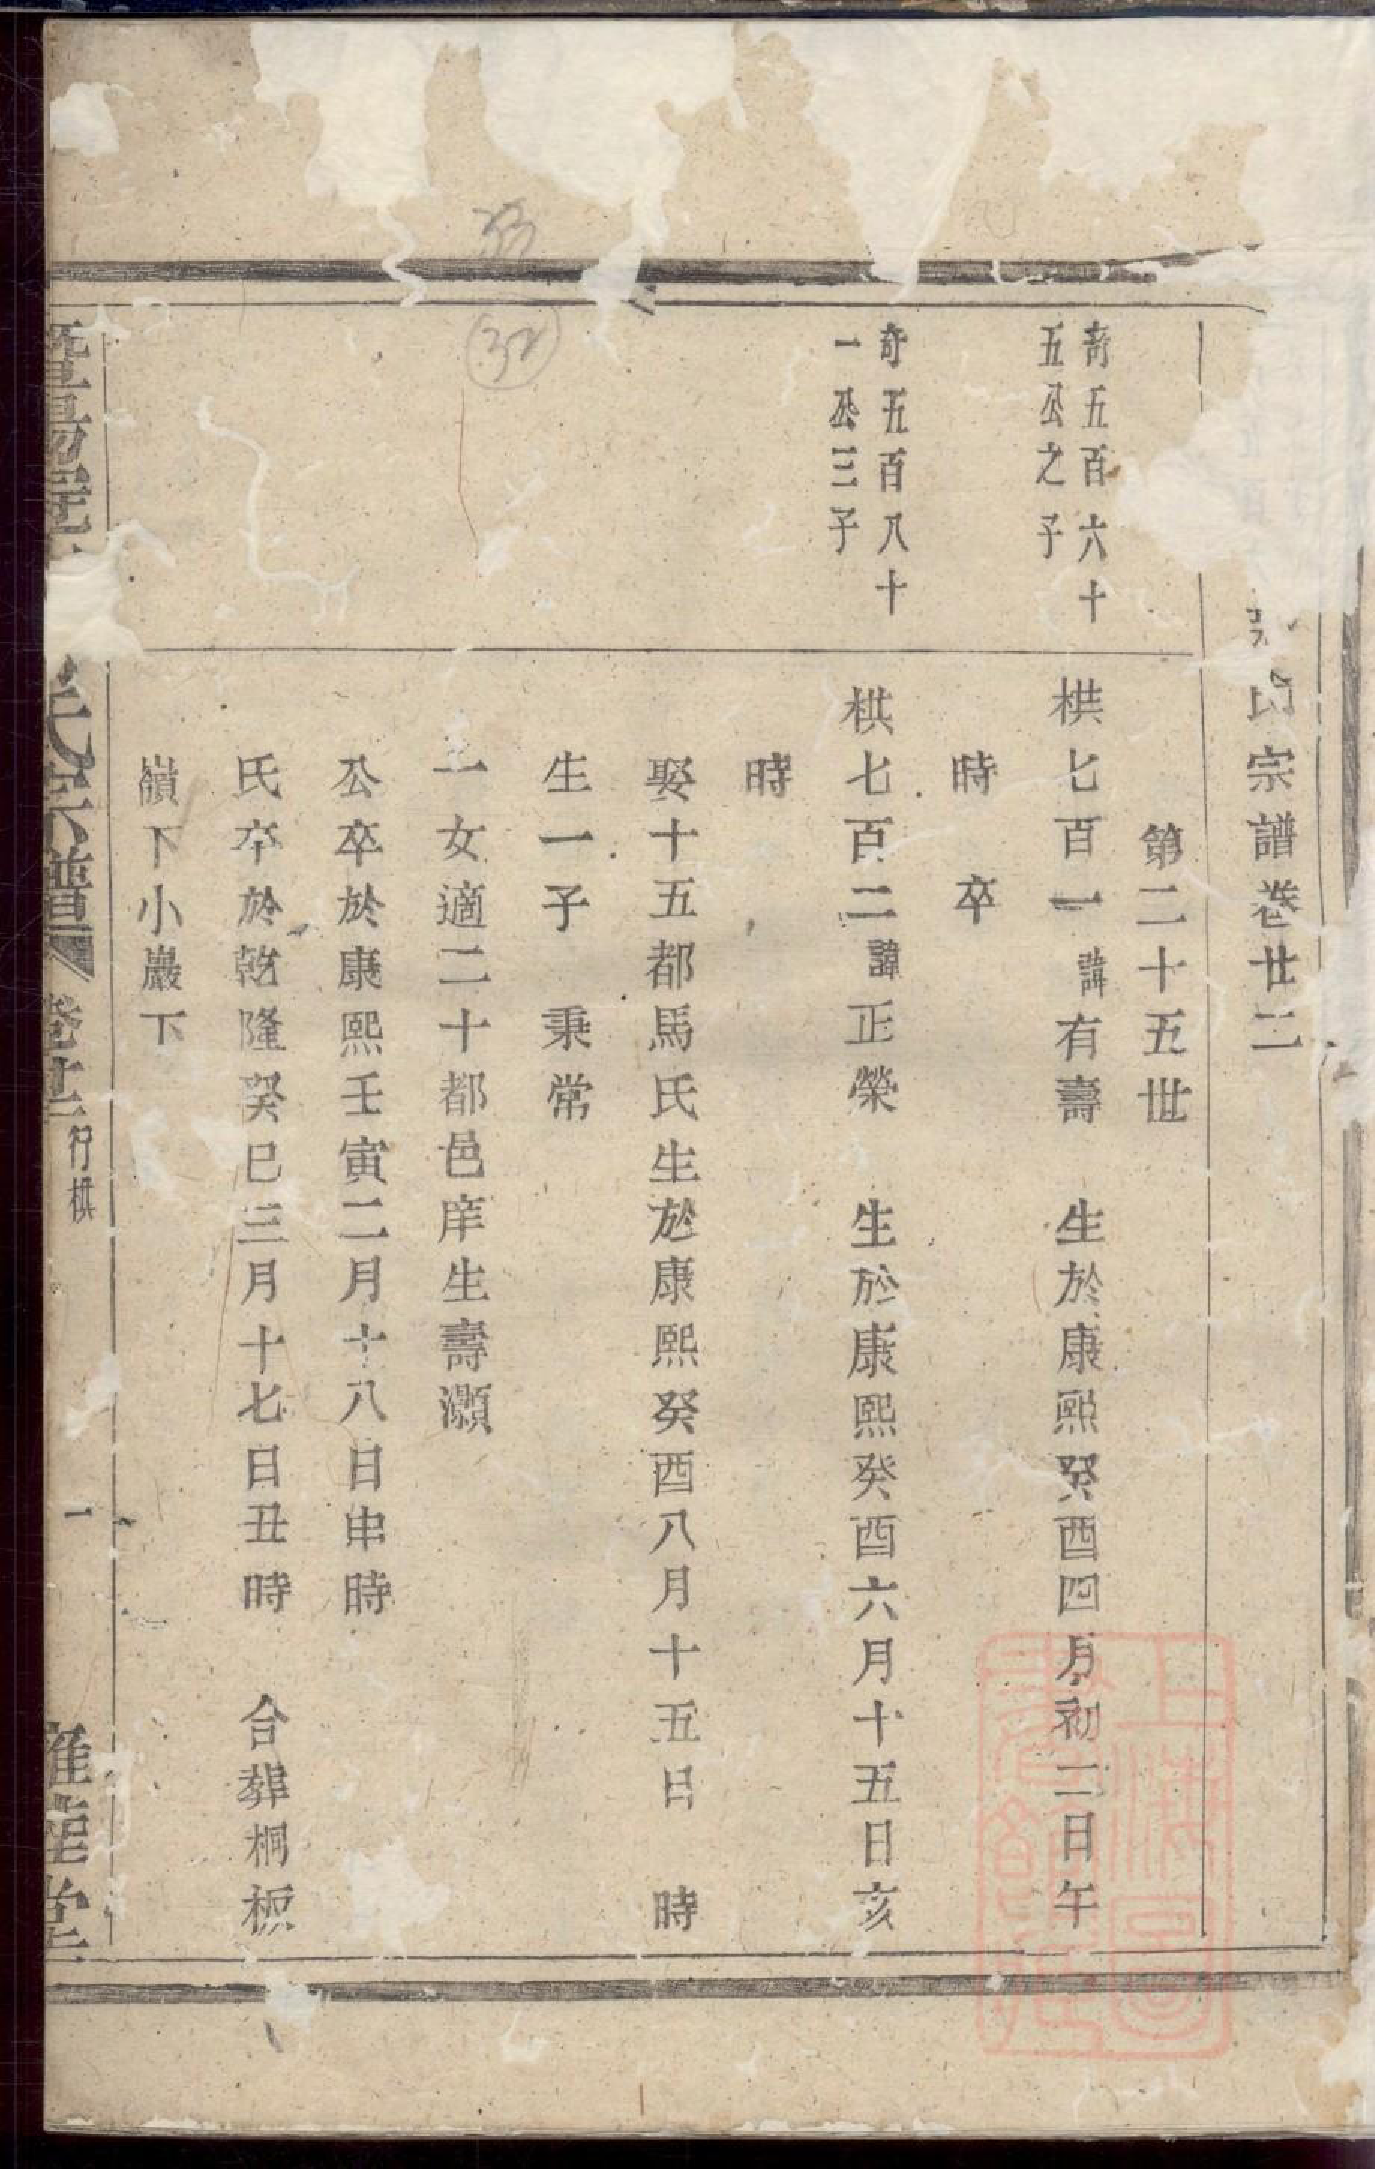 氏宗譜卷廿二
第二十五世
奇五百六十
五公之子
栱七百一諱有壽 生於康熙癸酉四月初二日午
時 卒
奇五百八十
一公三子
栱七百二諱正榮 生於康熙癸酉六月十五日亥
時
娶十五都馬氏生於康熙癸酉八月十五日 時
生一子 秉常
一女適二十都邑庠生壽灝
公卒於康熙壬寅二月十八日申時
氏卒於乾隆癸巳三月十七日丑時 合葬桐桭
嶺下小巖下
暨陽 氏宗譜 卷廿二 行栱 一 堂
33
32
上海圖書館藏